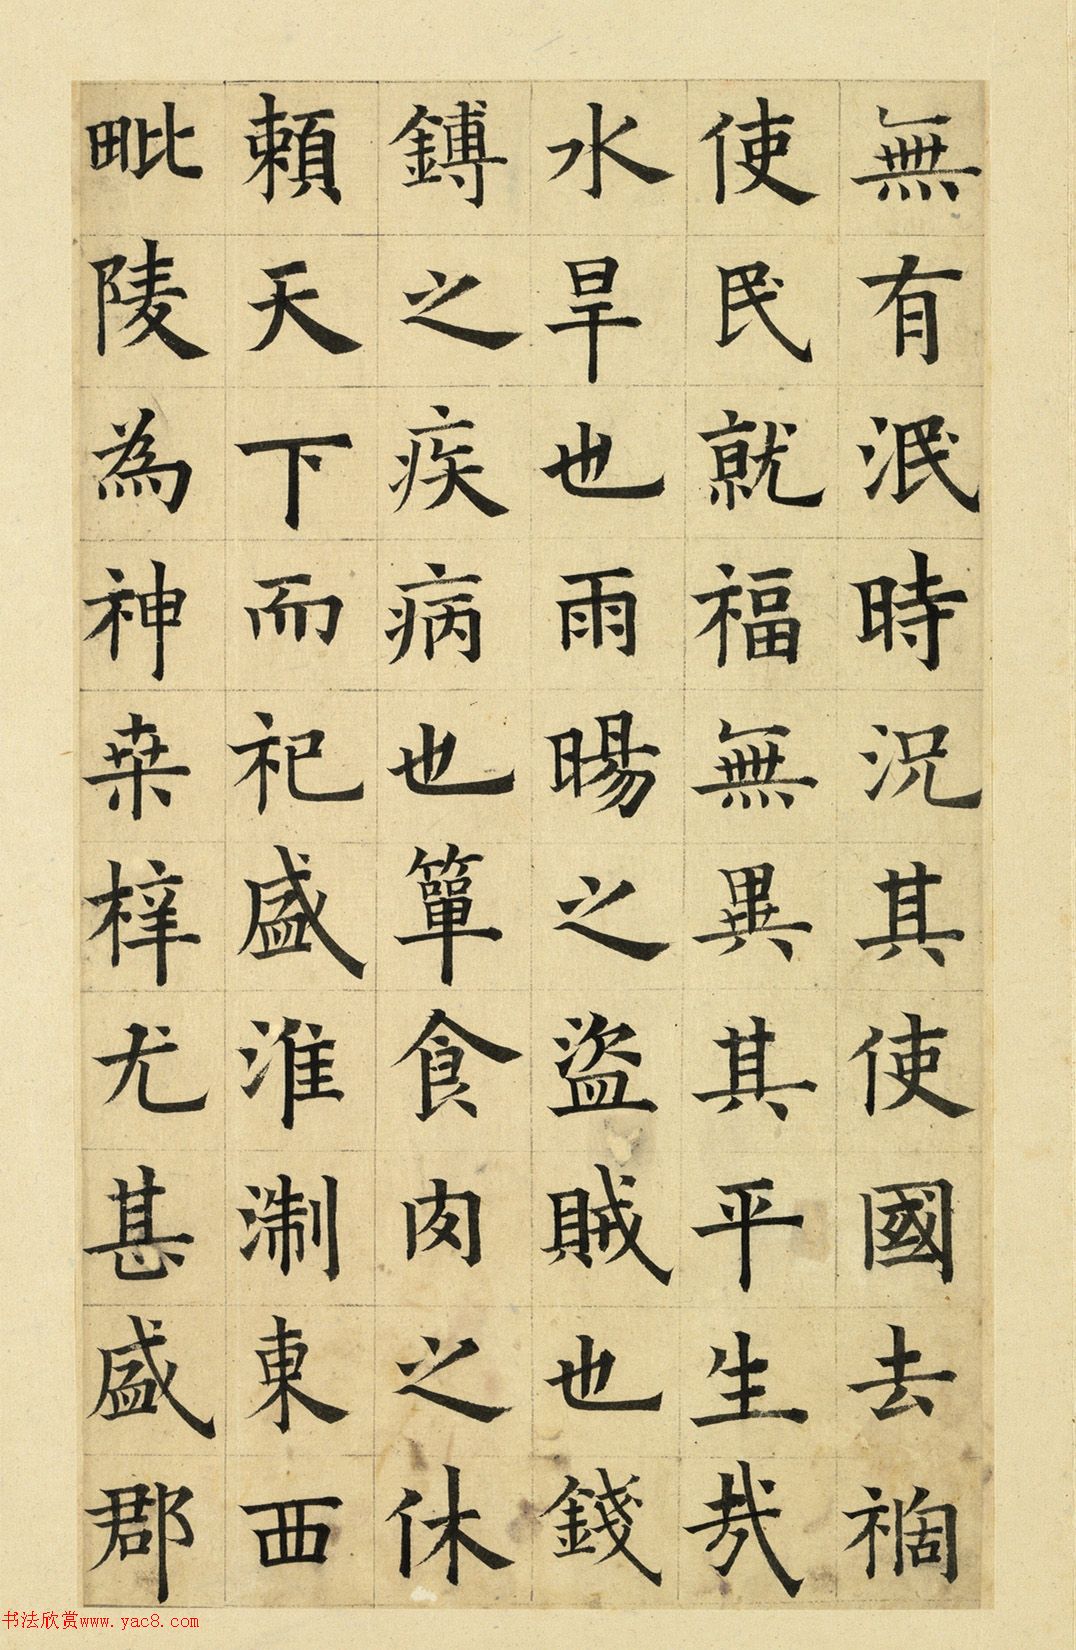 無有泯時況其使國去禍
使民就福無異其平生㢤
水旱也雨暘之盜賊也錢
鎛之疾病也簞食肉之休
賴天下而祀盛淮淛東西
毗陵為神桒梓尤甚盛郡
书法欣赏www.yac8.com